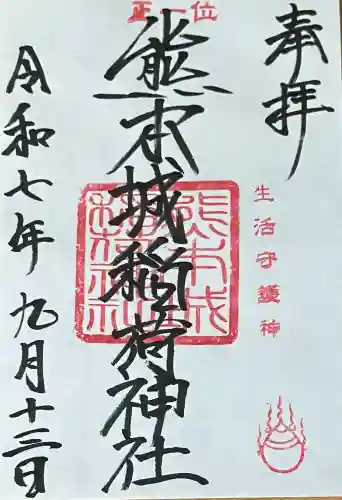 奉拝
生活守護神
正一位
熊本城稲荷神社
熊本城稲荷神社
令和七年九月十三日